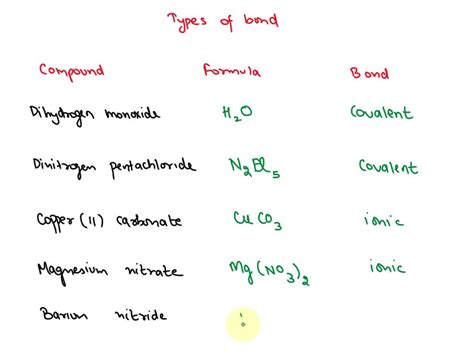 Types of bond
Compound Formula Bond
Dihydrogen monoxide H₂O Covalent
Dinitrogen pentachloride N₂Cl₅ Covalent
Copper (II) carbonate CuCO₃ ionic
Magnesium nitrate Mg(NO₃)₂ ionic
Barium nitride